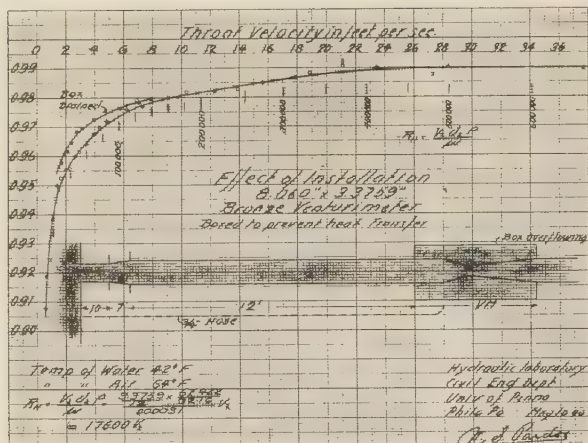 Throat Velocity in feet per sec.
0 2 4 6 8 10 12 14 16 18 20 22 24 26 28 30 32 34 36
0.99
0.98
0.97
0.96
0.95
0.94
0.93
0.92
0.91
0.90
Box Drained
100000
200000
300000
400000
500000
600000
Effect of Installation
8.060" x 3.3759"
Bronze Venturimeter
Boxed to prevent heat Transfer
Box Overflowing
10 7 12' VM
3/4" Hose
Temp of Water 42°F
" " Air 64°F
= 17600
Hydraulic laboratory
Civil Eng Dept
Univ of Penna
Phila Pa